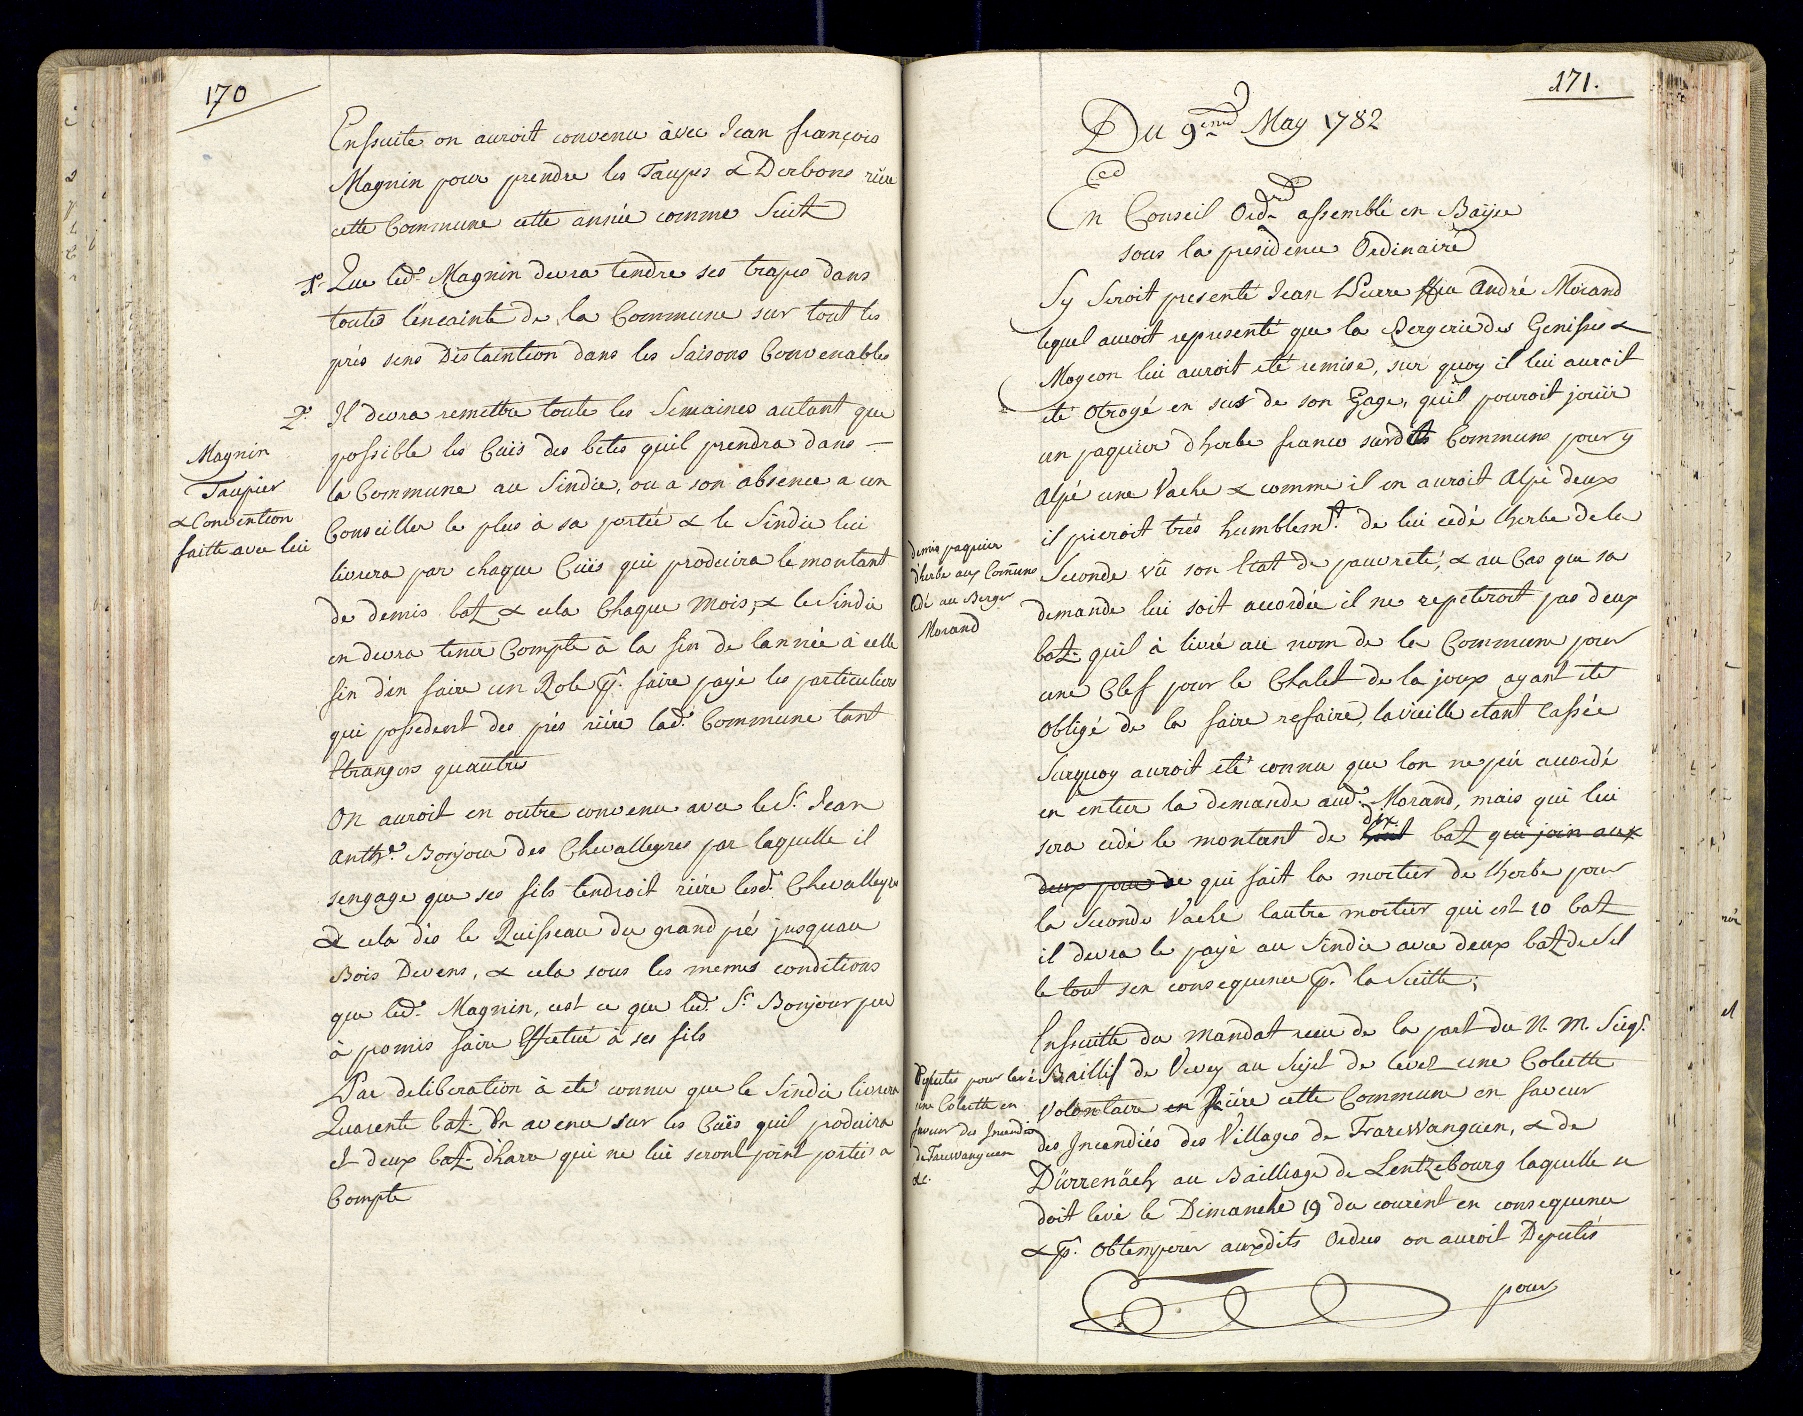 170
Ensuite on auroit convenu àvec Jean françois
Magnin pour prendre les Taupes & Derbons riére
cette Commune cette année comme Suit
1.° Que led.t Magnin devra tendre ses trapes dans
toutes l'encainte de la Commune sur tout les
prés sens Distaintion dans les Saisons Convenables
2.° Il devra remettre toute les Semaines autant que
possible les Cuïs des betes quil prendra dans
la Commune au Sindic, ou a son absence a un
Conseiller le plus à sa portée & le Sindic lui
livrera par chaque Cuïs qui produira le montant
de demis batz & cela Chaque Mois, & le Sindic
en devra tenir Compte à la fin de lannée à celle
fin d'en faire un Role p.r faire payé les particuliers
qui possedent des prés riére lad.te Commune tant
Etrangers quautres
Magnin
Taupier
& Convention
faitte avec lui
On auroit en outre convenu avec le S.r Jean
Anth.e Bonjour des Chevalleyres par laquelle il
sengage que ses fils tendroit riére lesd.t Chevalleyres
& cela dès le Ruisseau du grand pré jusquau
Bois Devens, & cela sous les memes conditions
que led.t Magnin, cest ce que led.t S.r Bonjour pere
à promis faire Effectué à ses fils
Par deliberation à eté connu que le Sindic livrera
Quarente batz. En avenu sur les Cuïs quil produira
et deux batz. dhare qui ne lui seront point portés a
Compte
171.
Du 9.eme May 1782
En Conseil Ord.re assemblé en Baÿse
sous la presidence Ordinaire
Sy Seroit presenté Jean Pierre ffeu André Morand
lequel auroit representé que la Bergerie des Genisses &
Mogeon lui auroit eté remise, sur quoy il lui auroit
eté Otroyé en sus de son Gage, quil pouroit jouïr
un paquier dherbe franco surdits Communs pour y
Alpé une Vache & comme il en auroit Alpé deux
il prieroit trés humblem.t de lui cedé lherbe de la
Seconde vû son Etat de pauvreté, & au Cas que sa
demande lui soit accordée il ne repeteroit pas deux
batz. quil à livré au nom de la Commune pour
une Clef pour le Chalet de la joux ayant eté
Obligé de la faire refaire, la vieille etant Cassée
demis paquier
d'herbe aux Comuns
cédé au Berger
Morand
Surquoy auroit eté connu que lon ne peu accordé
en entier la demande aud.t Morand, mais qui lui
sera cédé le montant de huit dix batz qui join aux
deux pour de qui fait la moitier de lherbe pour
la Seconde Vache lautre moitier qui est 10 batz
il devra le payé au Sindic avec deux batz de Sel
le tout sen consequence p.r la Suitte;
Ensuitte du mandat reçu de la part du N. M. Seig.r
Baillif de Vevey au Sujet de levez une Colecte
volontaire en riére cette Commune en faveur
des Incendiés des Villages de Frarewanguen, & de
Dürrenäch au Bailliage de Lentzebourg laquelle se
doit levé le Dimanche 19 du courent en consequence
& p.r obtemperer auxdits Ordres on auroit Deputés
Deputés pour levé
une Colecte en
faveur des Incendiés
de Farewanguen
&c.
pour